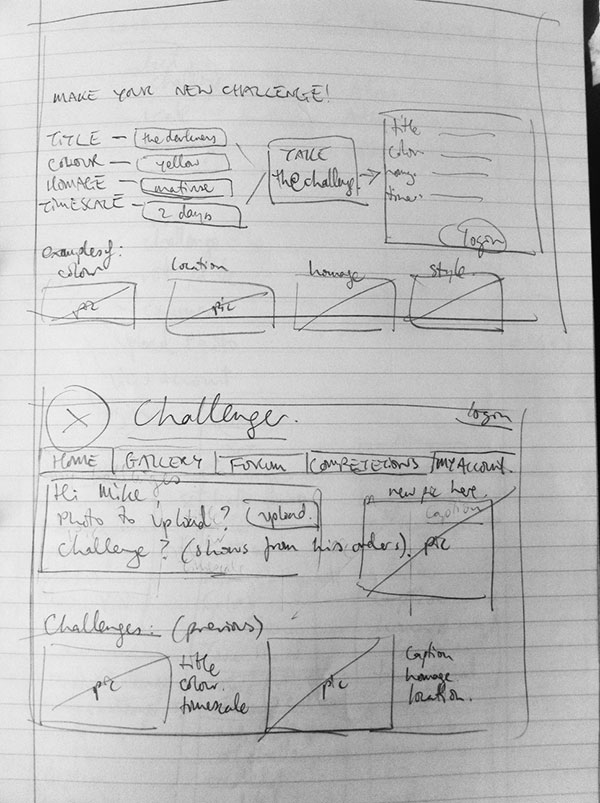 MAKE YOUR NEW CHALLENGE!
TITLE — the darkness
COLOUR — yellow
HOMAGE — matisse
TIMESCALE — 2 days
TAKE
the challenge
title
colour
homage
timesc
login
examples of:
colour
location
homage
style
pic
pic
X
Challenger.
login
HOME
GALLERY
FORUM
COMPETETIONS
MY ACCOUNT.
Hi Mike,
photo to upload? upload.
challenge? (shows from his orders).
new pic here.
caption
pic
Challenges: (previous)
pic
title
colour.
timescale
pic
caption
homage
location.